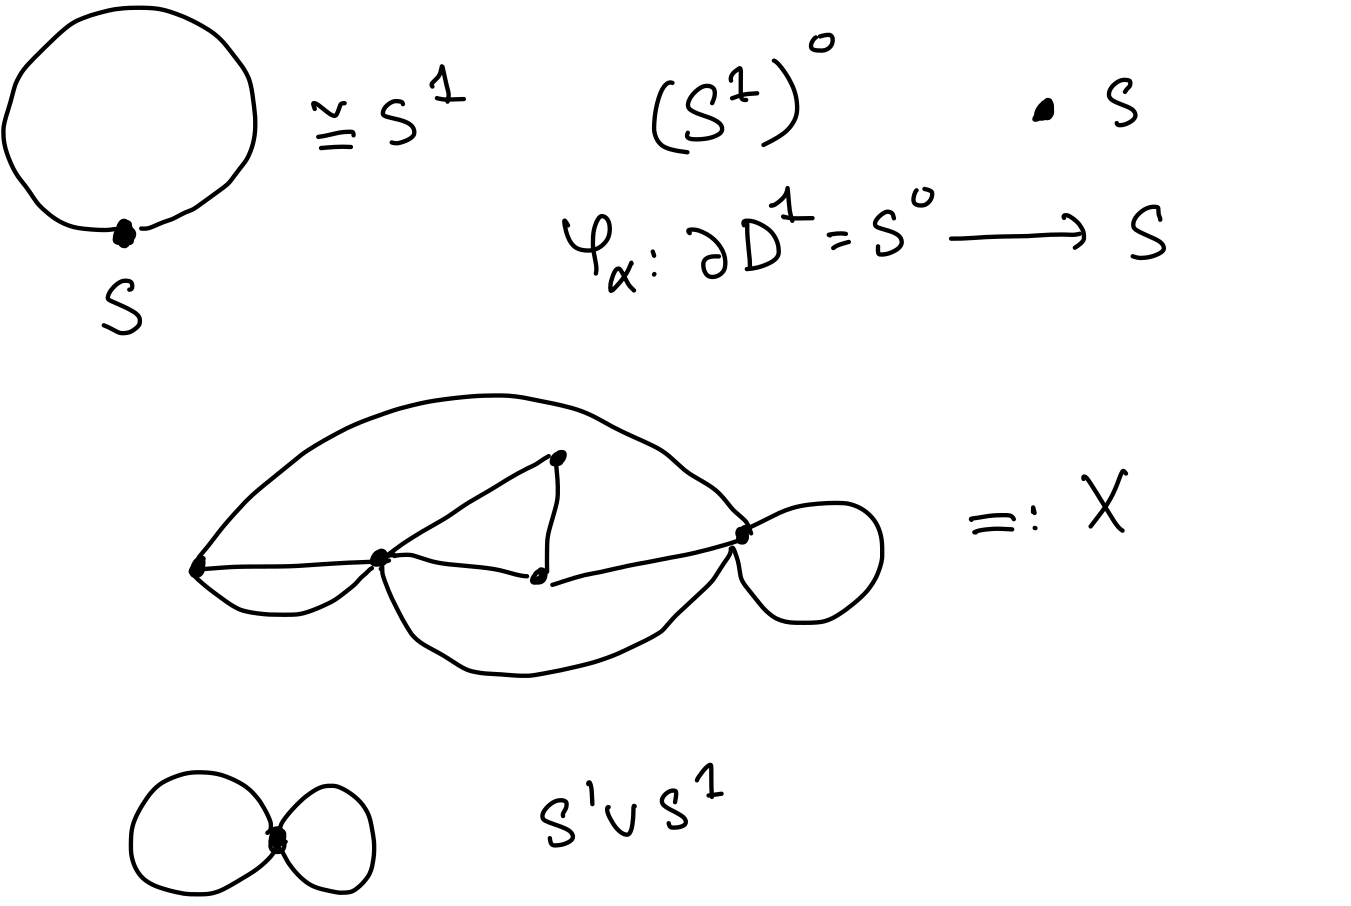 ≅ S¹
(S¹)⁰ • S
φ_α: ∂D¹ = S⁰ ⟶ S
S
=: X
S¹ ∨ S¹